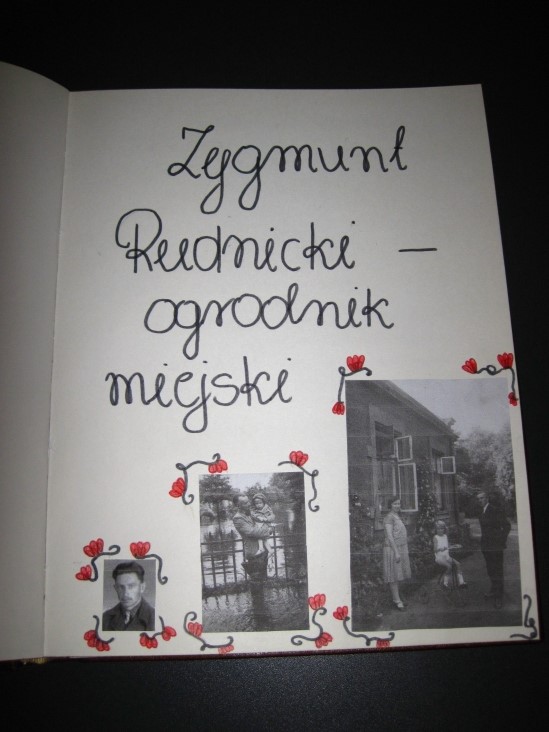 Zygmunt
Rudnicki –
ogrodnik
miejski